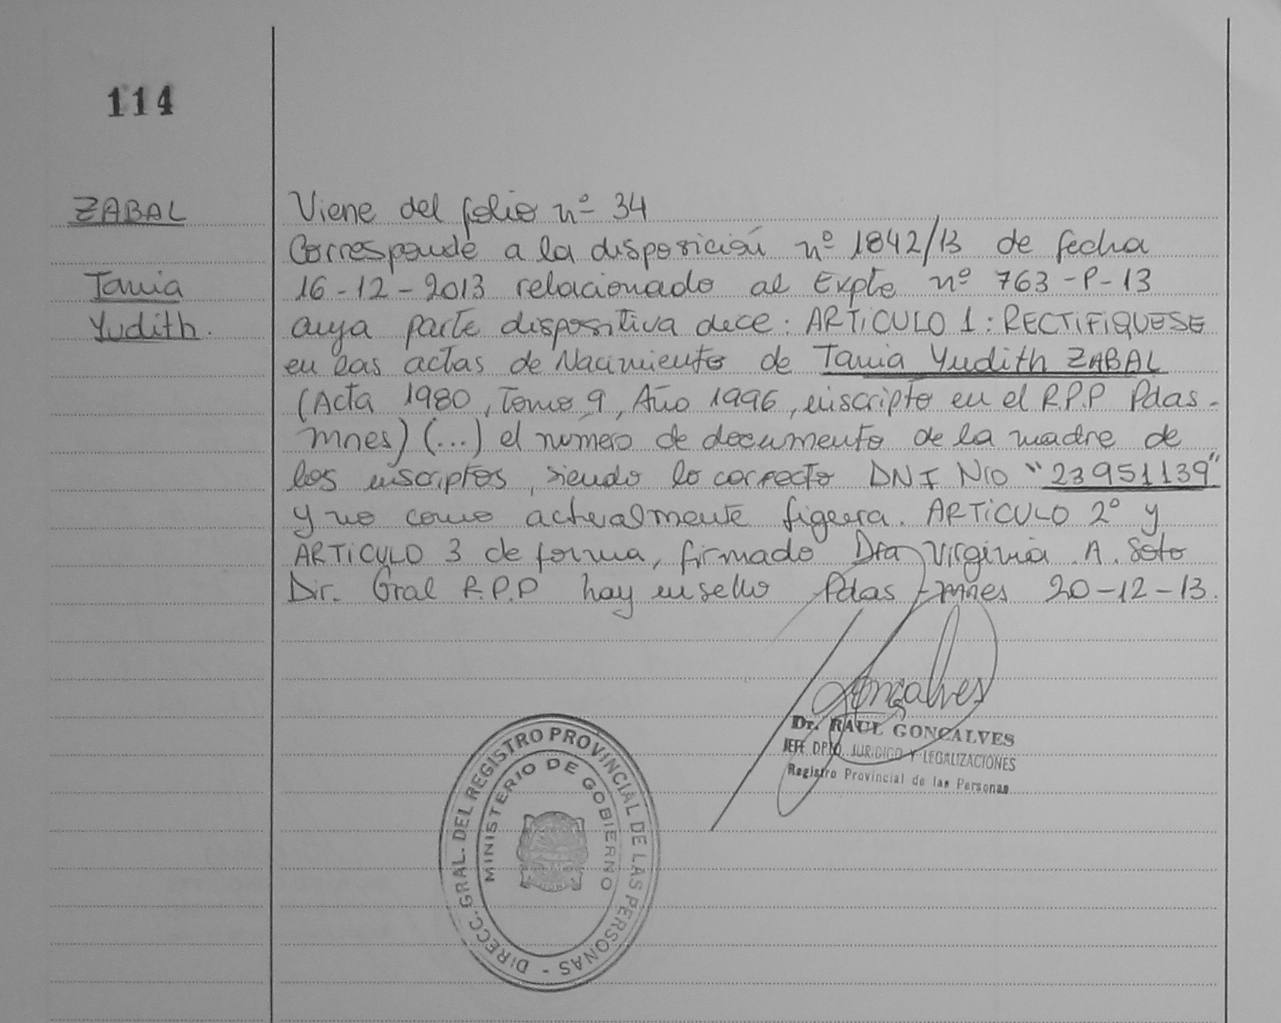 114
ZABAL
Tania
Yudith.
Viene del folio nº 34
Corresponde a la disposición nº 1842/13 de fecha
16-12-2013 relacionado al Expte nº 763-P-13
cuya parte dispositiva dice: ARTICULO 1: RECTIFIQUESE
en las actas de Nacimiento de Tania Yudith ZABAL
(Acta 1980, Tomo 9, Año 1996, inscripto en el R.P.P Pdas-
mnes) (...) el número de documento de la madre de
los inscriptos, siendo lo correcto DNI Nro "23951139"
y no como actualmente figura. ARTICULO 2º y
ARTICULO 3 de forma, firmado Dra Virginia A. Soto
Dir. Gral R.P.P hay un sello Pdas-mnes 20-12-13.
Gonçalves
Dr. RAUL GONCALVES
JEFE DPTO. JURIDICO Y LEGALIZACIONES
Registro Provincial de las Personas
DIRECC. GRAL. DEL REGISTRO PROVINCIAL DE LAS PERSONAS -
MINISTERIO DE GOBIERNO